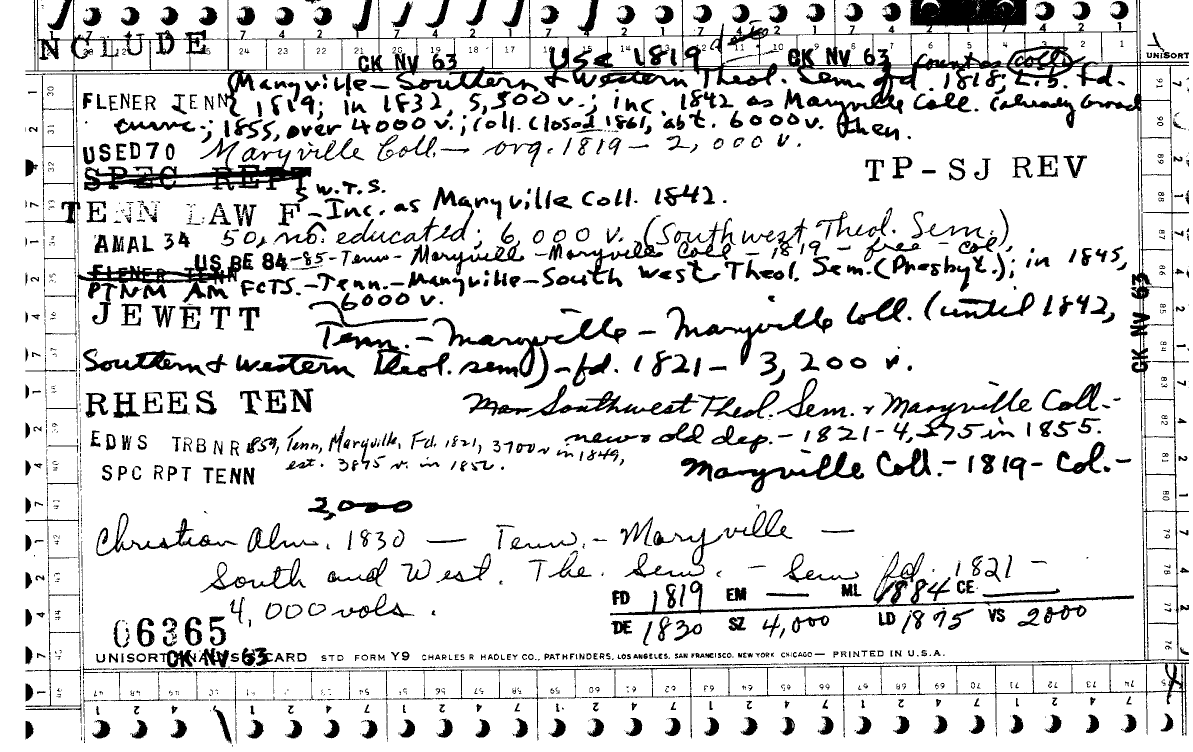 INCLUDE
CK NV 63 Use 1819 date CK NV 63 Count as coll
UNISORT
Maryville - Southern & Western Theol. Sem. fd. 1818; Lib. Fd.
FLENER TENN 1819; in 1832, 5,500 v.; inc. 1842 as Maryville Coll. (already broad
curric.; 1855, over 4000 v.; coll. closed 1861, abt. 6000 v. then.
USED70 Maryville Coll. - org. 1819 - 2,000 v.
SPEC REPT TP-SJ REV
S.W.T.S.
TENN LAW F - Inc. as Maryville Coll. 1842.
AMAL 34 50, no. educated; 6,000 v. (Southwest Theol. Sem.)
US BE 84-85 - Tenn - Maryville - Maryville Coll - 1819 - free - col.
FLENER TENN
PTNM AM FCTS. - Tenn. - Maryville - South West Theol. Sem. (Presbyt.); in 1845,
6000 v.
CK NV 63
JEWETT Tenn. - Maryville - Maryville Coll. (until 1842,
Southern & Western Theol. sem) - fd. 1821 - 3,200 v.
RHEES TEN Southwest Theol. Sem. & Maryville Coll. -
new & old dep. - 1821 - 4,375 in 1855.
EDWS TRBNR 1859, Tenn, Maryville, Fd. 1821, 3700 v in 1849,
est. 3875 v. in 1850.
SPC RPT TENN Maryville Coll. - 1819 - Col. -
2,000
Christian Alm. 1830 - Tenn. - Maryville -
South and West. The. Sem. - Sem fd. 1821 -
4,000 vols.
FD 1819 EM — ML 1884 CE —
DE 1830 SZ 4,000 LD 1875 VS 2000
06365
CK NV 63
UNISORT ANALYSIS CARD STD FORM Y9 CHARLES R HADLEY CO., PATHFINDERS, LOS ANGELES, SAN FRANCISCO, NEW YORK CHICAGO — PRINTED IN U.S.A.